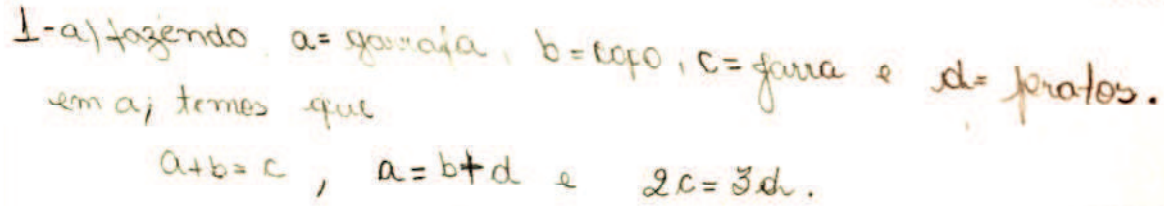 1-a) fazendo a= garrafa, b=copo, c= jarra e d= pratos.
em a; temos que
a+b=c , a=b+d e 2c=3d.